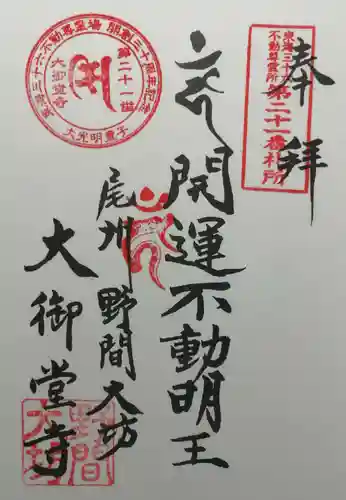 奉拝
東海三十六
不動尊霊所
第二十一番札所
開運不動明王
尾州 野間大坊
大御堂寺
東海三十六不動尊霊場 開創三十周年記念
第二十一番
大御堂寺
大光明童子
野間
大坊